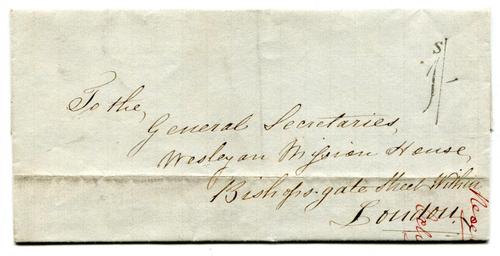 S
1/-
To the,
General Secretaries,
Wesleyan Mission House,
Bishopsgate Street Within
London.